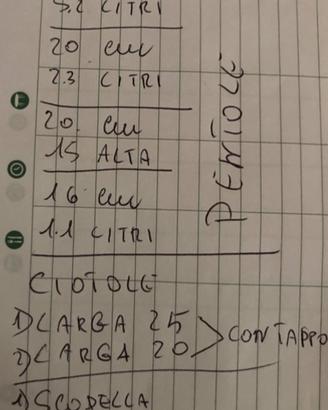 5.2 CITRI
20 cm
2.3 CITRI
20 cm
15 ALTA
16 cm
1.1 CITRI
PENTOLE
CIOTOLE
1) LARGA 25
2) LARGA 20
CON TAPPO
1) SCODELLA